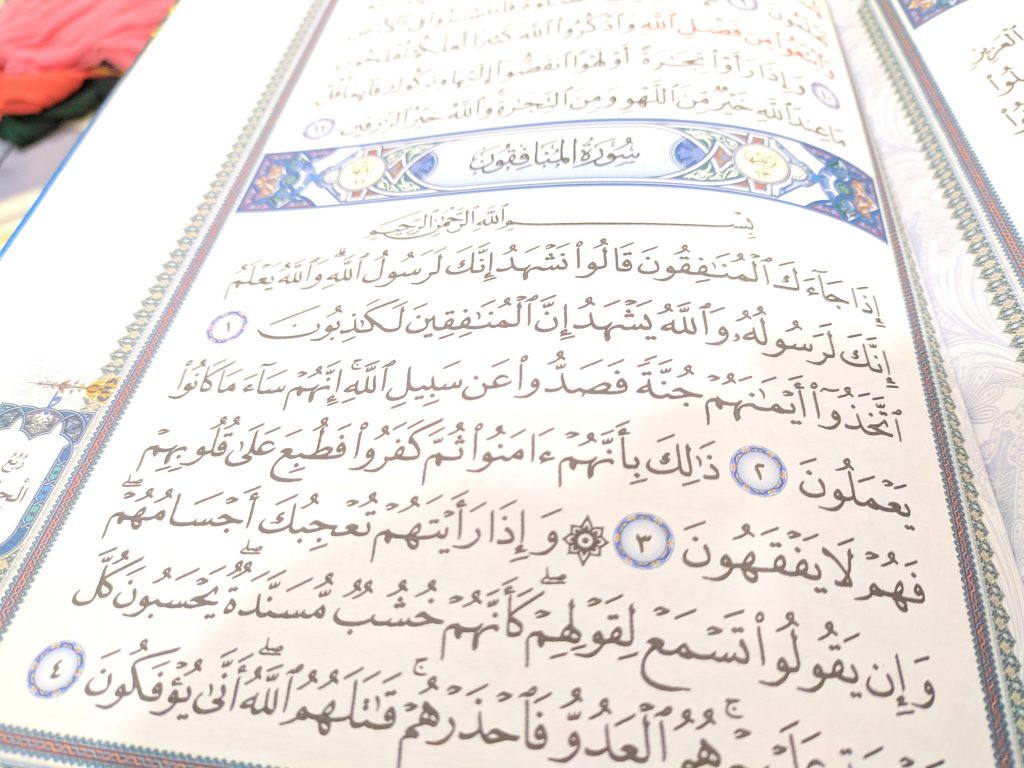 وَٱبۡتَغُواْ مِن فَضۡلِ ٱللَّهِ وَٱذۡكُرُواْ ٱللَّهَ كَثِيرٗا لَّعَلَّكُمۡ تُفۡلِحُونَ
١٠ وَإِذَا رَأَوۡاْ تِجَٰرَةً أَوۡ لَهۡوًا ٱنفَضُّوٓاْ إِلَيۡهَا وَتَرَكُوكَ قَآئِمٗاۚ قُلۡ
مَا عِندَ ٱللَّهِ خَيۡرٞ مِّنَ ٱللَّهۡوِ وَمِنَ ٱلتِّجَٰرَةِۚ وَٱللَّهُ خَيۡرُ ٱلرَّٰزِقِينَ ١١
سُورَةُ المُنَافِقُونَ
بِسۡمِ ٱللَّهِ ٱلرَّحۡمَٰنِ ٱلرَّحِيمِ
إِذَا جَآءَكَ ٱلۡمُنَٰفِقُونَ قَالُواْ نَشۡهَدُ إِنَّكَ لَرَسُولُ ٱللَّهِۗ وَٱللَّهُ يَعۡلَمُ
إِنَّكَ لَرَسُولُهُۥ وَٱللَّهُ يَشۡهَدُ إِنَّ ٱلۡمُنَٰفِقِينَ لَكَٰذِبُونَ ١
ٱتَّخَذُوٓاْ أَيۡمَٰنَهُمۡ جُنَّةٗ فَصَدُّواْ عَن سَبِيلِ ٱللَّهِۚ إِنَّهُمۡ سَآءَ مَا كَانُواْ
يَعۡمَلُونَ ٢ ذَٰلِكَ بِأَنَّهُمۡ ءَامَنُواْ ثُمَّ كَفَرُواْ فَطُبِعَ عَلَىٰ قُلُوبِهِمۡ
فَهُمۡ لَا يَفۡقَهُونَ ٣ ۞ وَإِذَا رَأَيۡتَهُمۡ تُعۡجِبُكَ أَجۡسَامُهُمۡۖ
وَإِن يَقُولُواْ تَسۡمَعۡ لِقَوۡلِهِمۡۖ كَأَنَّهُمۡ خُشُبٞ مُّسَنَّدَةٞۖ يَحۡسَبُونَ كُلَّ
هُمُ ٱلۡعَدُوُّ فَٱحۡذَرۡهُمۡۚ قَٰتَلَهُمُ ٱللَّهُۖ أَنَّىٰ يُؤۡفَكُونَ ٤